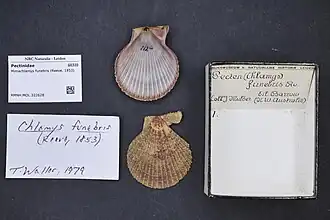 NBC Naturalis - Leiden
Pectinidae
Mimachlamys funebris (Reeve, 1853)
RMNH.MOL.322628
Chlamys funebris
(Reeve, 1853)
T. Waller, 1979
Pecten (Chlamys)
funebris Rv.
(N.W. Australia)
1.